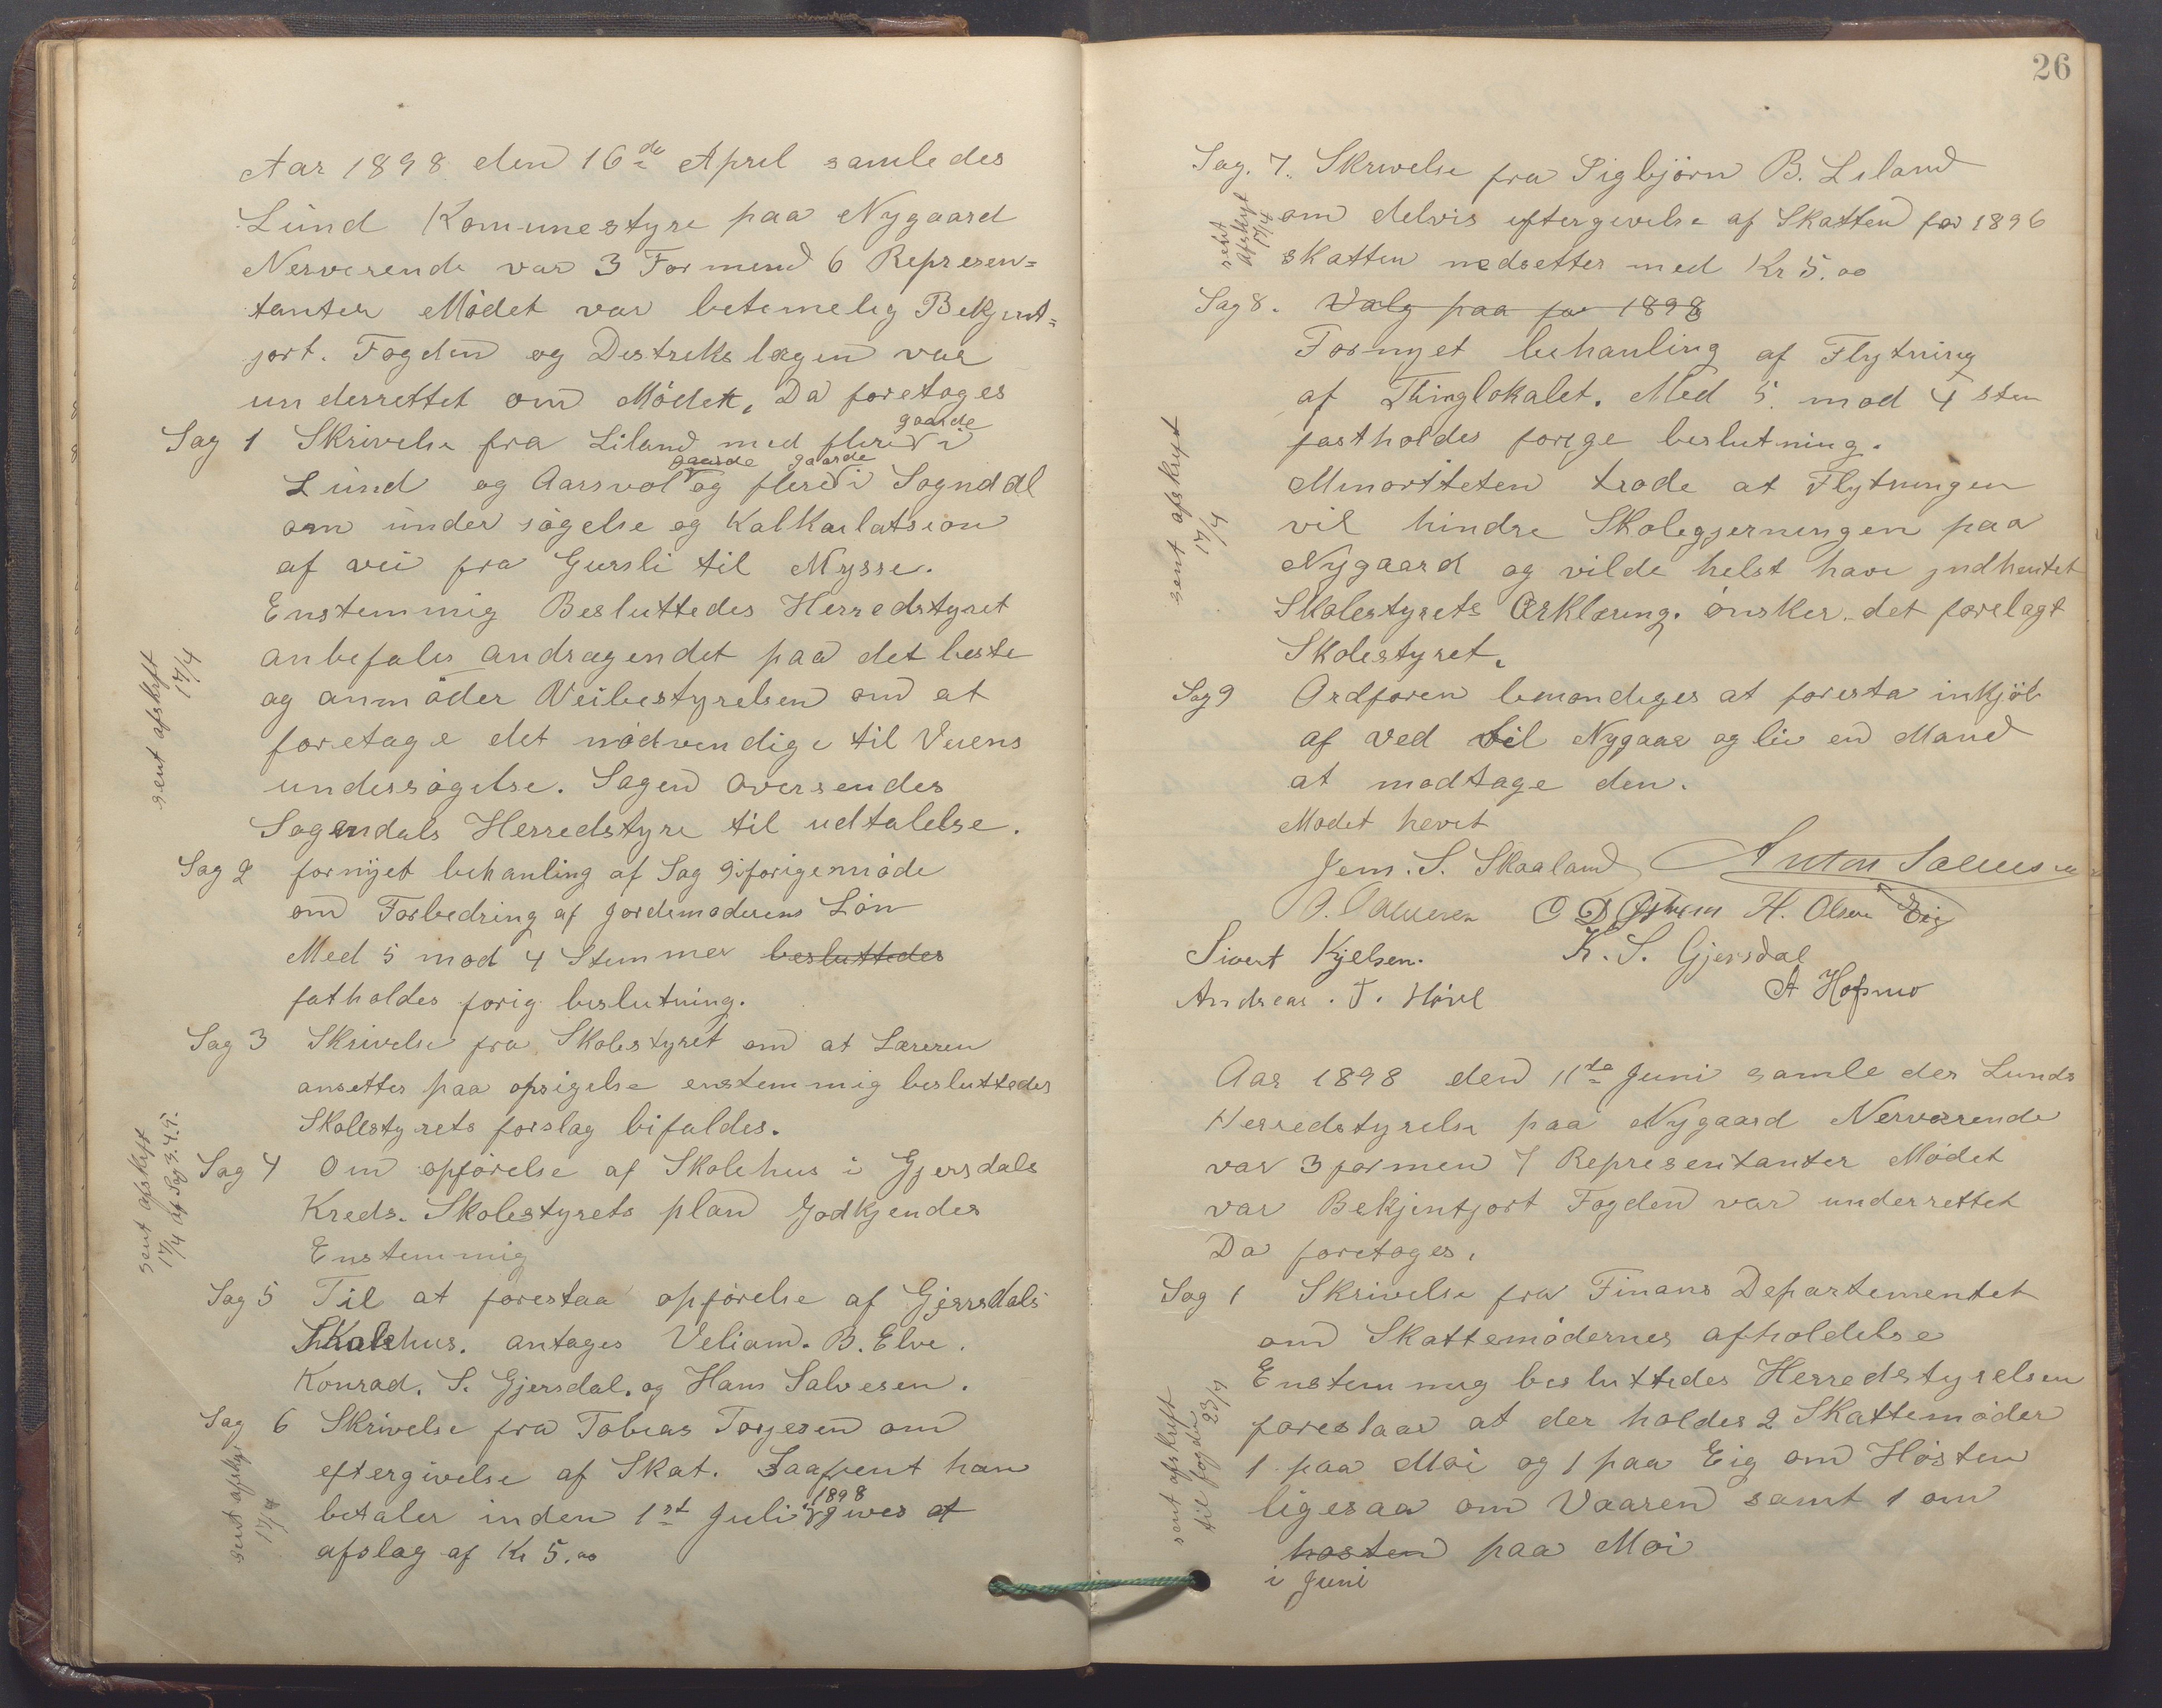 Aar 1898 den 16de April samledes
Lund Komunestyre paa Nygaard
Nerverende var 3 Formend 6 Represen=
tanter Mødet var betimelig Bekjent=
jort. Fogden og Destrekslægen var
underrettet om Mødet, Da foretages
gaarde
Sag 1 Skrivelse fra Liland med flere i
gaarde gaarde
Lund og Aarsvol og flere i Sognddl
om under søgelse og Kalkarlatsion
af vei fra Gursli til Mysse.
Enstemmig Besluttedes Herredstyret
anbefaler andragendet paa det beste
og anmøder Veibestyrelsen om at
foretage det nødvendige til Veiens
undersøgelse. Sagen oversendes
Sogendals Herredstyre til udtalelse.
sent afskrift
17/4
Sag 2 fornyet behanling af Sag 9 i forige møde
om Forbedring af Jordemoderens Løn
Med 5 mod 4 Stemmer besluttedes
fatholdes forig beslutning.
Sag 3 Skrivelse fra Skolestyret om at Læreren
ansettes paa opsigelse enstemmig besluttedes
Skolestyrets forslag bifaldes.
sent afskrift
17/4 af Sag 3.4.5.
Sag 4 Om opførelse af Skolehus i Gjersdals
Kreds. Skolestyrets plan Godkjendes
Enstemmig
Sag 5 Til at forestaa opførelse af Gjersdals
Skolehus. antages Veliam. B. Elve.
Konrad. S. Gjersdal. og Hans Salvesen.
Sag 6 Skrivelse fra Tobias Torgesen om
eftergivelse af Skat. Saafrent han
1898
betaler inden 1st Juli gives et
afslag af Kr 5.00
sent afskr
17/4
26
Sag. 7. Skrivelse fra Sigbjørn B. Leland
om delvis eftergivelse af Skatten for 1896
skatten nedsettes med Kr 5.00
sent
afskryt
17/4
Sag 8. Valg paa for 1898
Fornyet behanling af Flytning
af Thinglokalet. Med 5 mod 4 stem
fastholdes forige beslutning.
Minoriteten trode at Flytningen
vil hindre Skolegjerningen paa
Nygaard og vilde helst have indhentet
Skolestyrets Erklæring. ønsker det forelagt
Skolestyret.
sent afskryt
17/4
Sag 9 Ordføren bemøndiges at foresta inkjøb
af Ved til Nygaar og lei en Mand
at modtage den.
Mødet hevet
Jem. S. Skaaland Anton Salves
H. Olsen Eig
Sivert Kjelsen. K. S. Gjersdal
Andreas. T. Hovl A Hofsmo
Aar 1898 den 11te Juni samle des Lunds
Herredstyrelse paa Nygaard Nerværende
var 3 formen 7 Representanter Mødet
var Bekjentjort Fogden var underrettet
Da foretoges.
Sag 1 Skrivelse fra Finans Departementet
om Skattemødernes afholdelse
Enstemmig besluttedes Herredstyrelsen
foreslaar at der holdes 2 Skattemøder
1 paa Moi og 1 paa Eig om Høsten
ligesaa om Vaaren samt 1 om
høsten paa Moi
i Juni
sent afskrift
til fogden
23/7